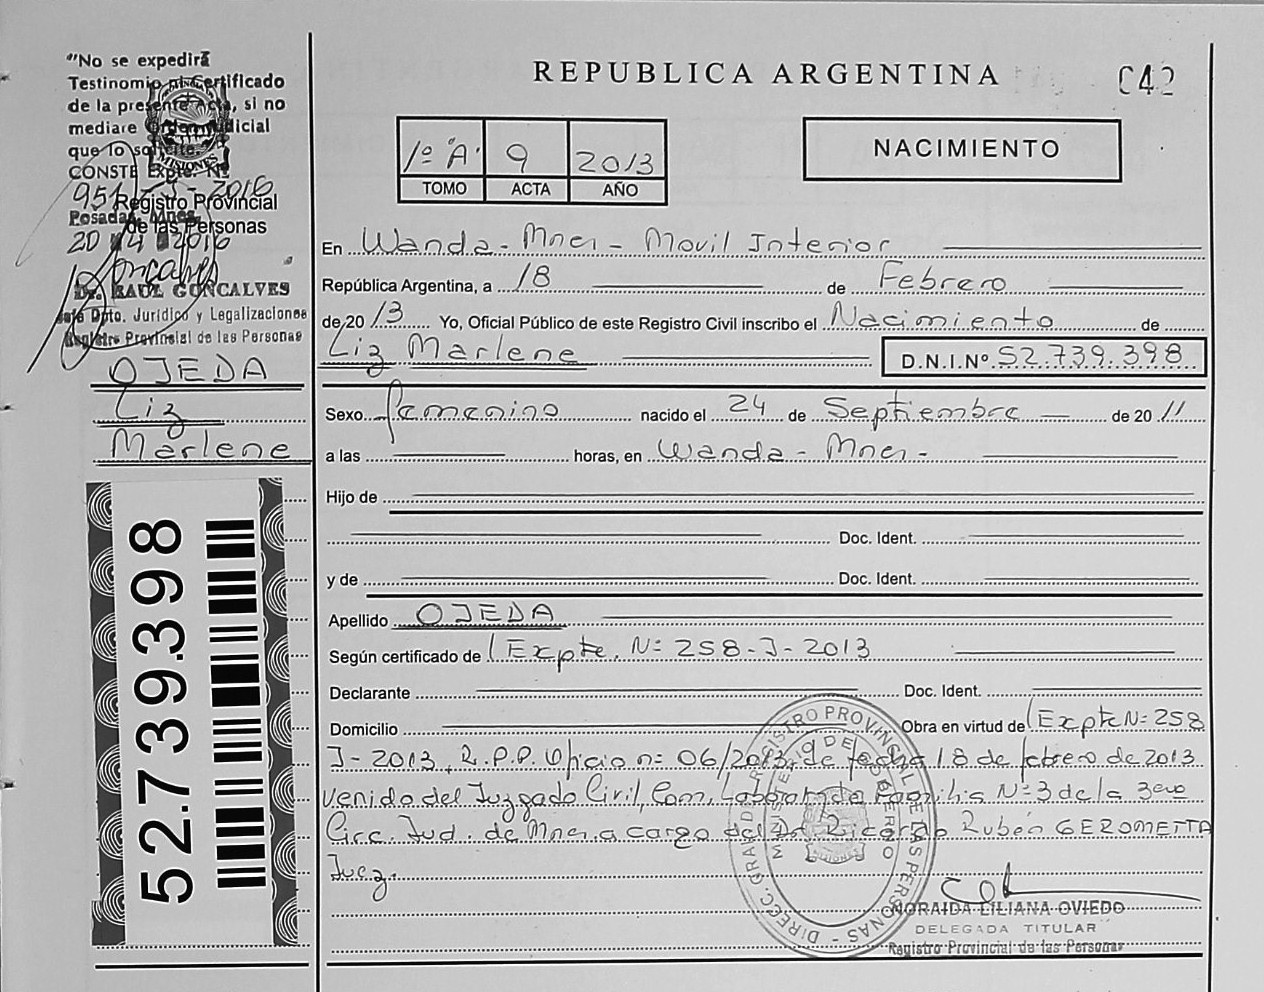 "No se expedirá
Testimonio ni Certificado
de la presente Acta, si no
mediare Orden Judicial
que lo solicite.
CONSTE Expte. Nº
951-J-2016
Registro Provincial
de las Personas
Posadas, Mnes.
20 4 2016
Goncalves
Dr. RAUL GONCALVES
Dpto. Jurídico y Legalizaciones
Registro Provincial de las Personas
MISIONES
OJEDA
Liz
Marlene
52.739.398
REPUBLICA ARGENTINA
042
1º "A" 9 2013
TOMO ACTA AÑO
NACIMIENTO
En Wanda - Mnes - Movil Interior
República Argentina, a 18 de Febrero
de 2013 Yo, Oficial Público de este Registro Civil inscribo el Nacimiento de
Liz Marlene D.N.I.Nº 52.739.398
Sexo femenino nacido el 24 de Septiembre de 2011
a las horas, en Wanda - Mnes -
Hijo de
Doc. Ident.
y de Doc. Ident.
Apellido OJEDA
Según certificado de Expte. Nº 258-J-2013
Declarante Doc. Ident.
Domicilio Obra en virtud de Expte Nº 258
J-2013, R.P.P. Oficio nº 06/2013, de fecha 18 de febrero de 2013
venido del Juzgado Civil, Com, Laboral y de Familia Nº 3 de la 3era
Circ. Jud. de Mnes a cargo del Dr Ricardo Rubén GEROMETTA
Juez.
DIRECC. GRAL. DE REGISTRO PROVINCIAL DE LAS PERSONAS
NORAIDA LILIANA OVIEDO
DELEGADA TITULAR
Registro Provincial de las Personas